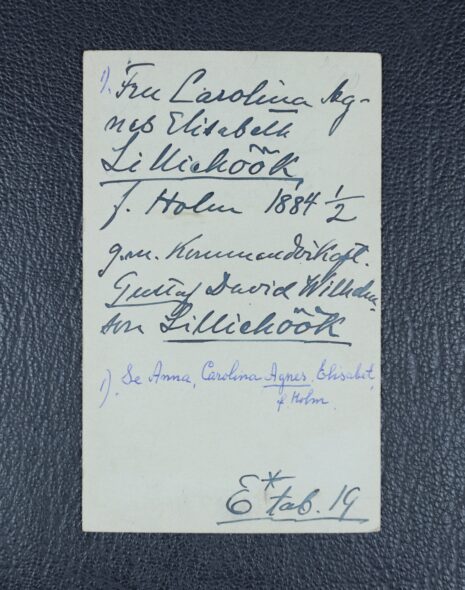 1). Fru Carolina Ag-
nes Elisabeth
Lilliehöök,
f. Holm 1884 1/2
g.m. Kommendörkapt.
Gustaf David Wilhelm-
son Lilliehöök
1). Se Anna, Carolina Agnes, Elisabet,
f. Holm
E* tab. 19